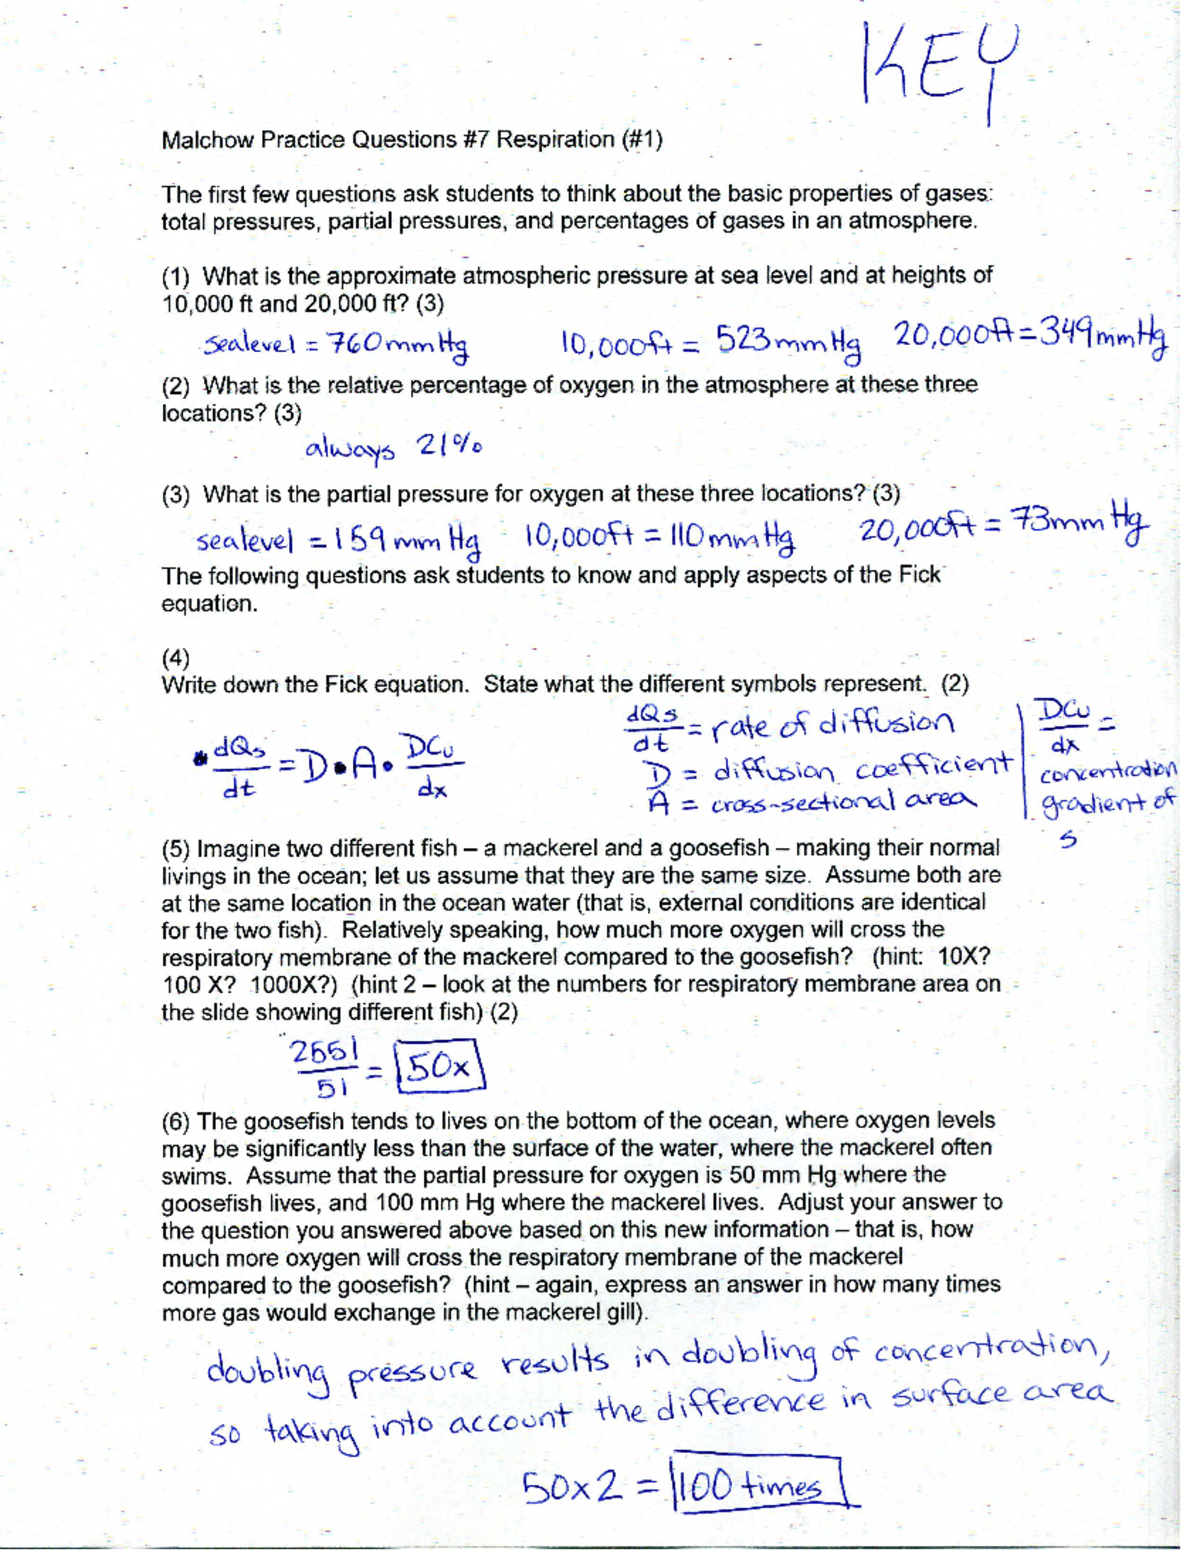 KEY
Malchow Practice Questions #7 Respiration (#1)
The first few questions ask students to think about the basic properties of gases:
total pressures, partial pressures, and percentages of gases in an atmosphere.
(1) What is the approximate atmospheric pressure at sea level and at heights of
10,000 ft and 20,000 ft? (3)
sealevel = 760mmHg 10,000ft = 523mmHg 20,000ft=349mmHg
(2) What is the relative percentage of oxygen in the atmosphere at these three
locations? (3)
always 21%
(3) What is the partial pressure for oxygen at these three locations? (3)
sealevel = 159 mm Hg 10,000ft = 110mmHg 20,000ft = 73mm Hg
The following questions ask students to know and apply aspects of the Fick
equation.
(4)
Write down the Fick equation. State what the different symbols represent. (2)
dQs/dt = D•A•DCu/dx
dQs/dt = rate of diffusion
D = diffusion coefficient
A = cross-sectional area
DCu/dx =
concentration
gradient of
s
(5) Imagine two different fish – a mackerel and a goosefish – making their normal
livings in the ocean; let us assume that they are the same size. Assume both are
at the same location in the ocean water (that is, external conditions are identical
for the two fish). Relatively speaking, how much more oxygen will cross the
respiratory membrane of the mackerel compared to the goosefish? (hint: 10X?
100 X? 1000X?) (hint 2 – look at the numbers for respiratory membrane area on
the slide showing different fish) (2)
2551/51 = 50x
(6) The goosefish tends to lives on the bottom of the ocean, where oxygen levels
may be significantly less than the surface of the water, where the mackerel often
swims. Assume that the partial pressure for oxygen is 50 mm Hg where the
goosefish lives, and 100 mm Hg where the mackerel lives. Adjust your answer to
the question you answered above based on this new information – that is, how
much more oxygen will cross the respiratory membrane of the mackerel
compared to the goosefish? (hint – again, express an answer in how many times
more gas would exchange in the mackerel gill).
doubling pressure results in doubling of concentration,
so taking into account the difference in surface area
50x2 = 100 times